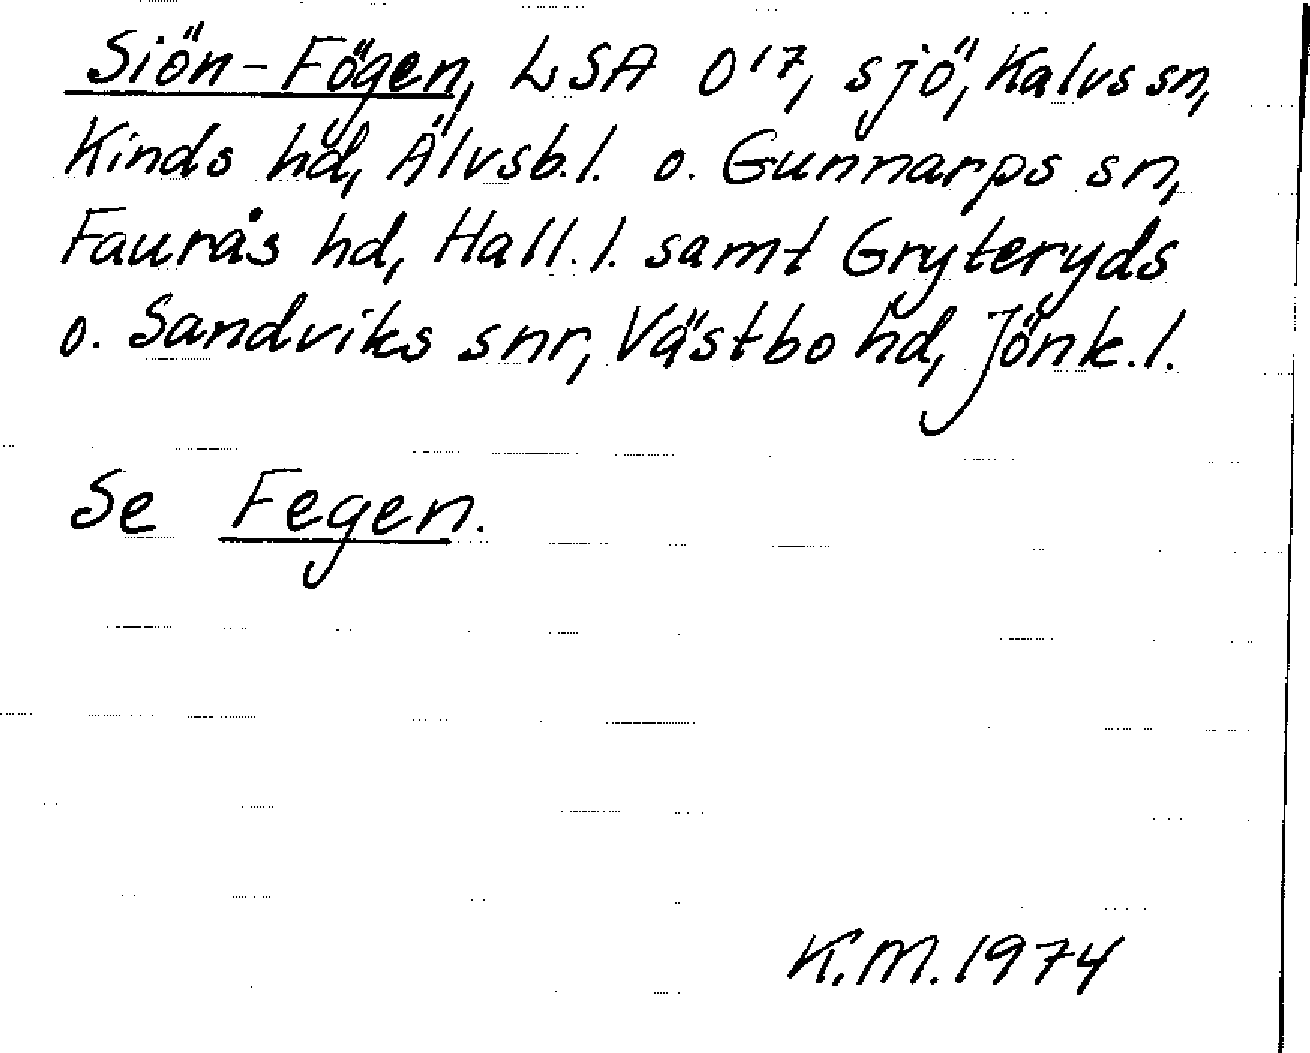 Siön-Fögen, LSA O17, sjö, Kalvs sn,
Kinds hd, Älvsb.l. o. Gunnarps sn,
Faurås hd, Hall.l. samt Gryteryds
o. Sandviks snr, Västbo hd, Jönk.l.
Se Fegen.
K.M. 1974